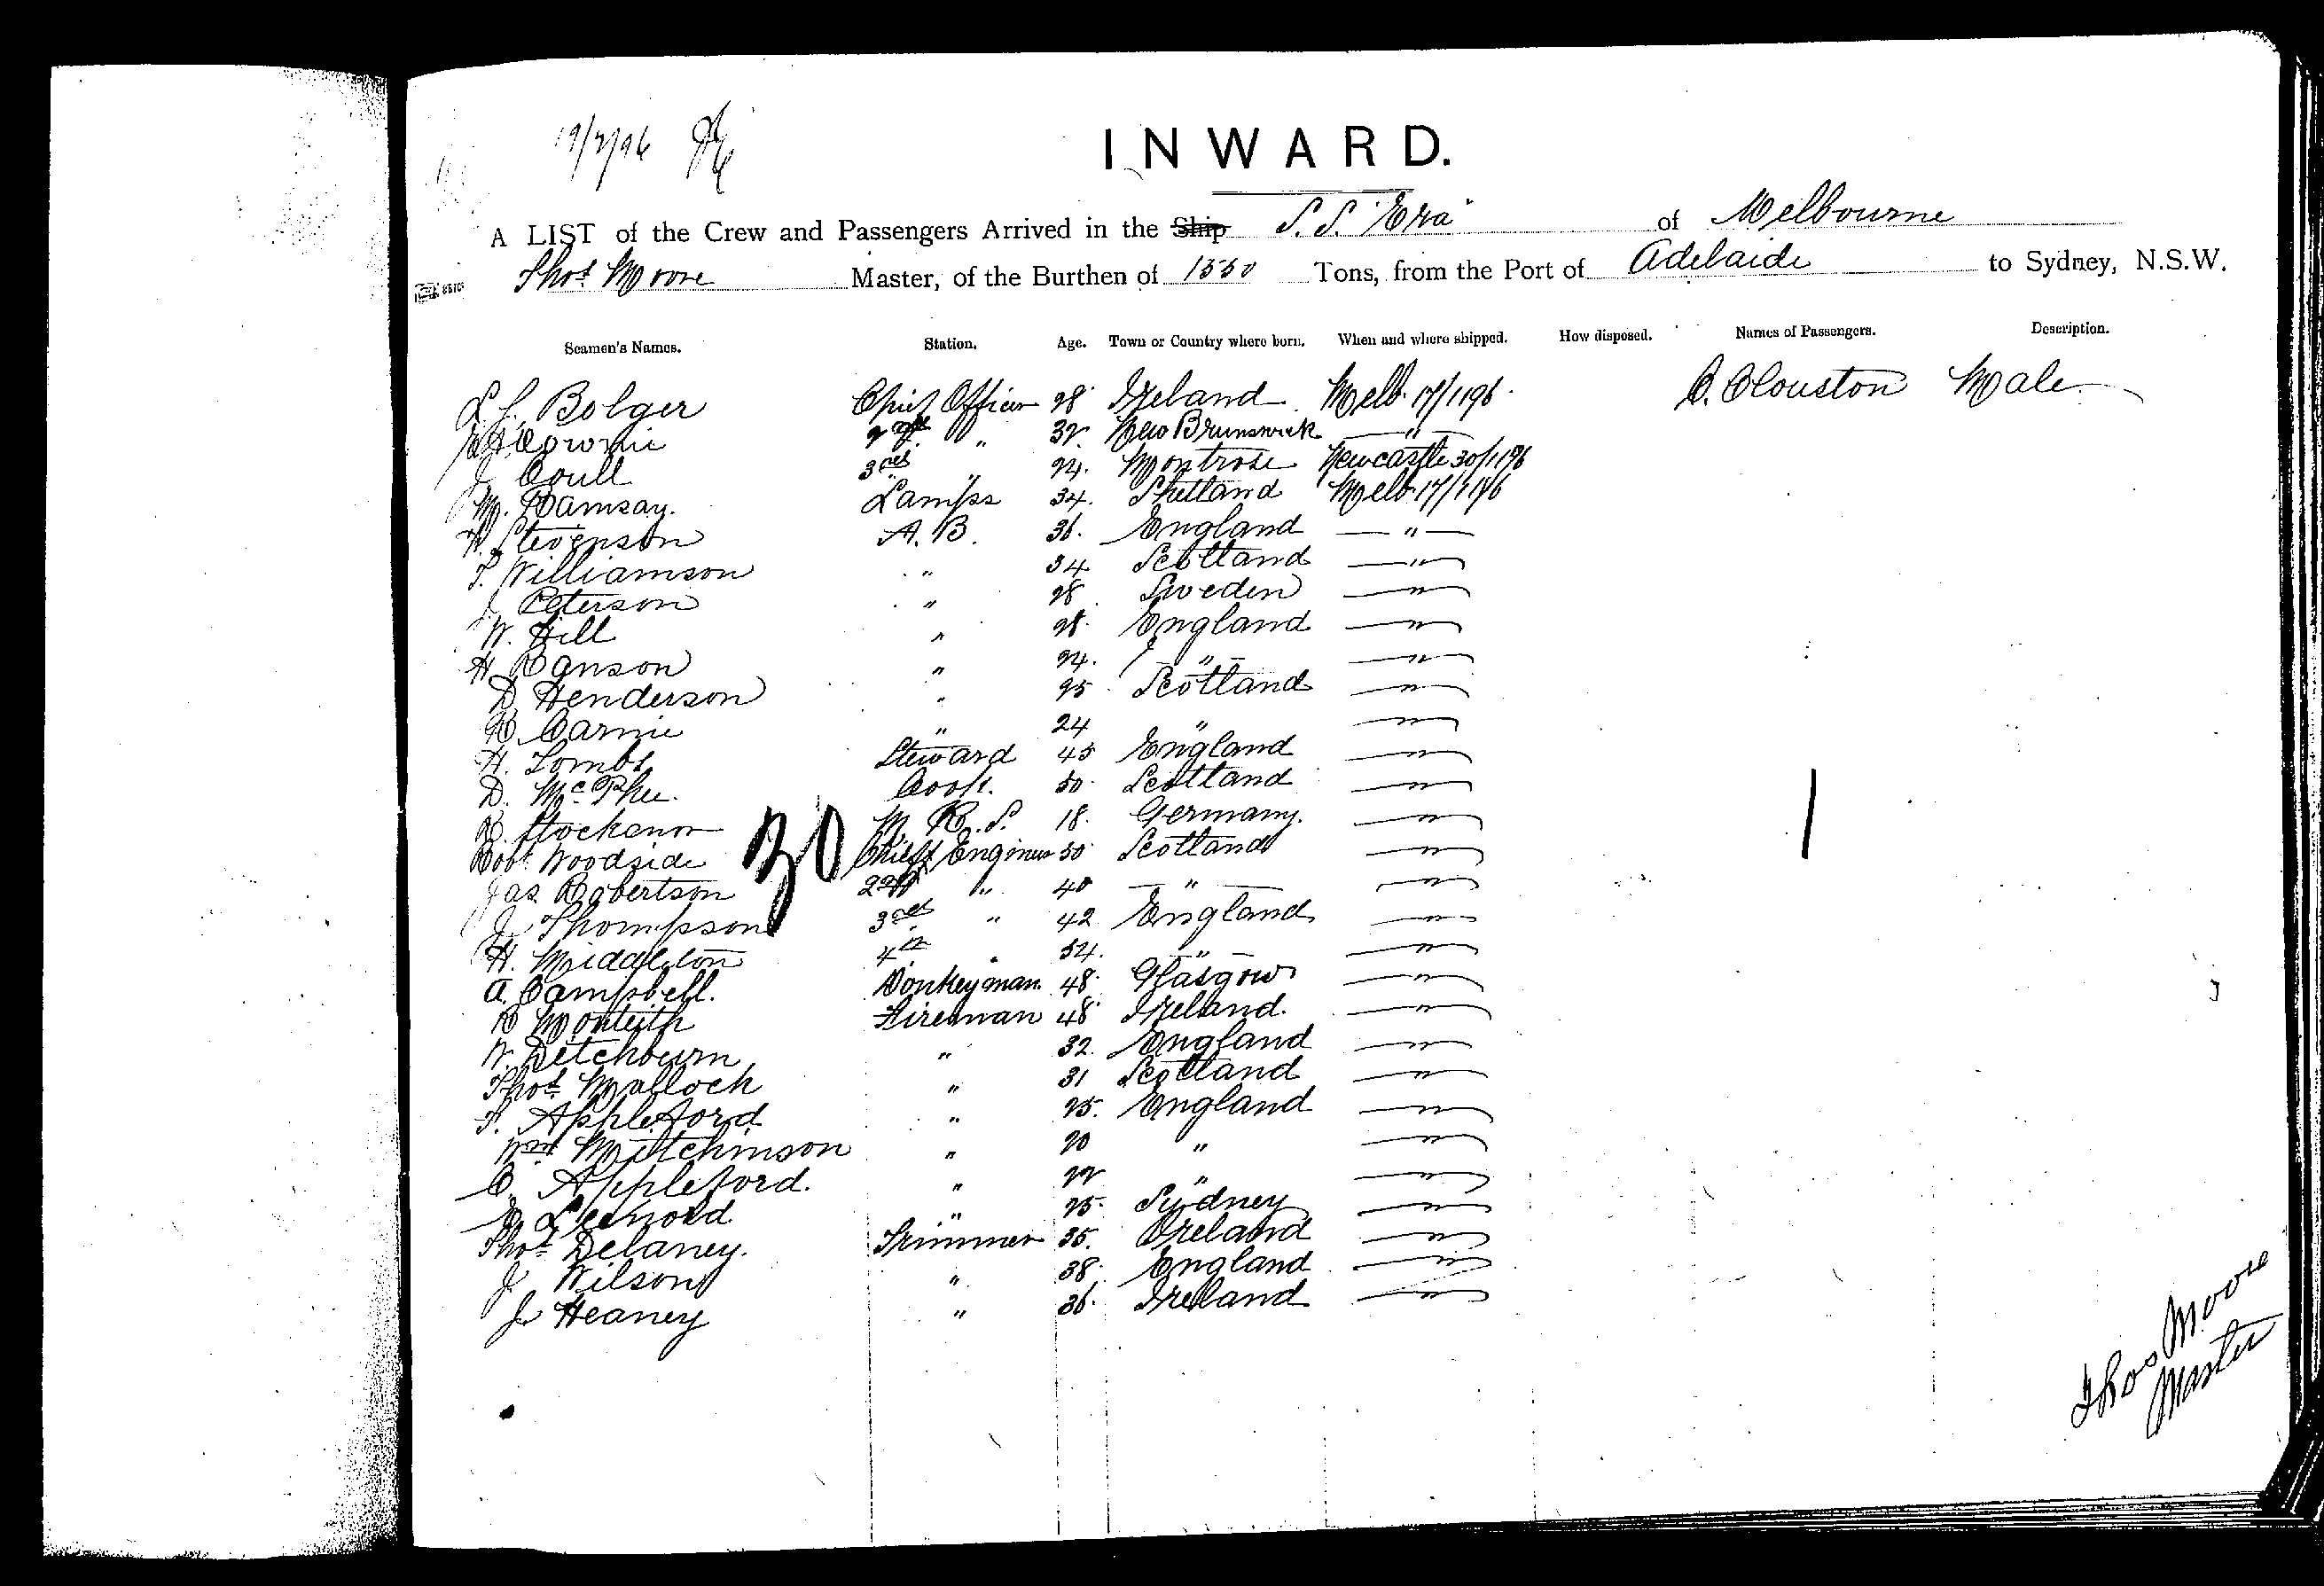 19/2/96
INWARD.
A LIST of the Crew and Passengers Arrived in the Ship S.S. "Era" of Melbourne
Thos. Moore Master, of the Burthen of 1550 Tons, from the Port of Adelaide to Sydney, N.S.W.
Seamen's Names. Station. Age. Town or Country where born. When and where shipped. How disposed. Names of Passengers. Description.
Bolger Chief Officer 28 Ireland Melb. 17/1/96. C. Clouston Male
2nd " 32. New Brunswick — " —
J Coull 3rd " 24. Montrose Newcastle 30/1/96
M. Ramsay. Lamps 34. Shetland Melb. 17/1/96
Stevenson A.B. 36. England — " —
T. Williamson " 34 Scotland — " —
J. Peterson " 28. Sweden — " —
W. Hill " 28. England — " —
H. Ranson " 24. — " — — " —
D Henderson " 25. Scotland — " —
R. Carnie " 24 " — " —
H. Tombs. Steward 45 England — " —
D. McPhee. Cook. 50. Scotland — " —
M. R. S. 18. Germany. — " —
Robt. Woodside Chief Engineer 50 Scotland — " —
30
Jas. Robertson 2nd " 40 — " — — " —
J. Thompson 3rd " 42 England — " —
H. Middleton 4th " 54. — " — — " —
A. Campbell. Donkeyman. 48. Glasgow — " —
R Monteith Fireman 48 Ireland. — " —
W. Detchburn " 32. England — " —
Thos. Malloch " 31 Scotland — " —
T. Appleford " 25. England — " —
Wm. Mutchinson " 20 " — " —
C. Appleford. " 22 " — " —
" 25. Sydney — " —
Thos. Delaney. Trimmer 35. Ireland — " —
J Wilson " 38. England — " —
J. Heaney " 36. Ireland — " —
1
Thos Moore
Master